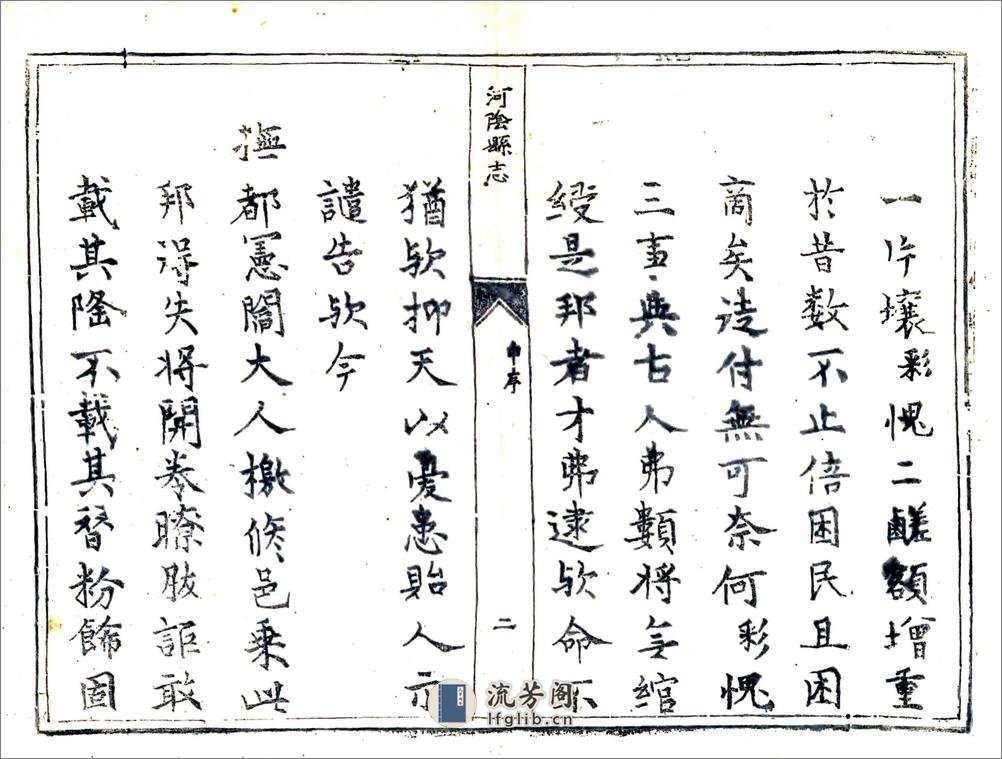 一片壤彩愧二鹺額增重
於昔数不止倍困民且困
商矣徒付無可奈何彩愧
三事與古人弗類將毋綰
綬是邦者才弗逮欤命不
河陰縣志
申序
二
猶欤抑天以憂患貽人示
譴告欤今
撫都憲閻大人檄修邑乗此
邦得失將開卷瞭肰詎敢
載其隆不載其替粉飾固
流芳阁
lfglib.cn